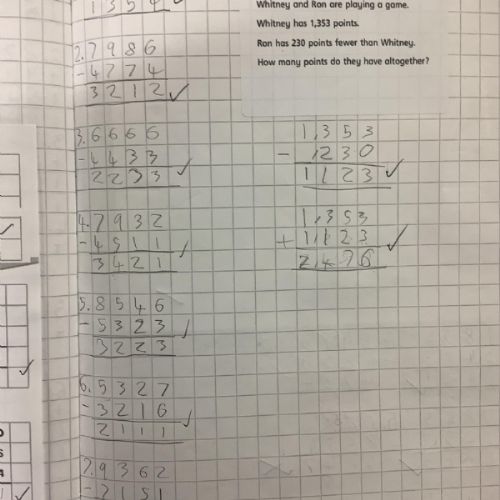 1 3 5 4 ✓
2. 7 9 8 6
- 4 7 7 4
3 2 1 2 ✓
3. 6 6 6 6
- 4 4 3 3
2 2 3 3 ✓
4. 7 9 3 2
- 4 5 1 1
3 4 2 1 ✓
5. 8 5 4 6
- 5 3 2 3
3 2 2 3 ✓
6. 5 3 2 7
- 3 2 1 6
2 1 1 1 ✓
7. 9 3 6 2
- 2 1 5 1
Whitney and Ron are playing a game.
Whitney has 1,353 points.
Ron has 230 points fewer than Whitney.
How many points do they have altogether?
1,3 5 3
- ,2 3 0
1 1 2 3 ✓
1,3 5 3
+ 1,1 2 3
2,4 7 6 ✓